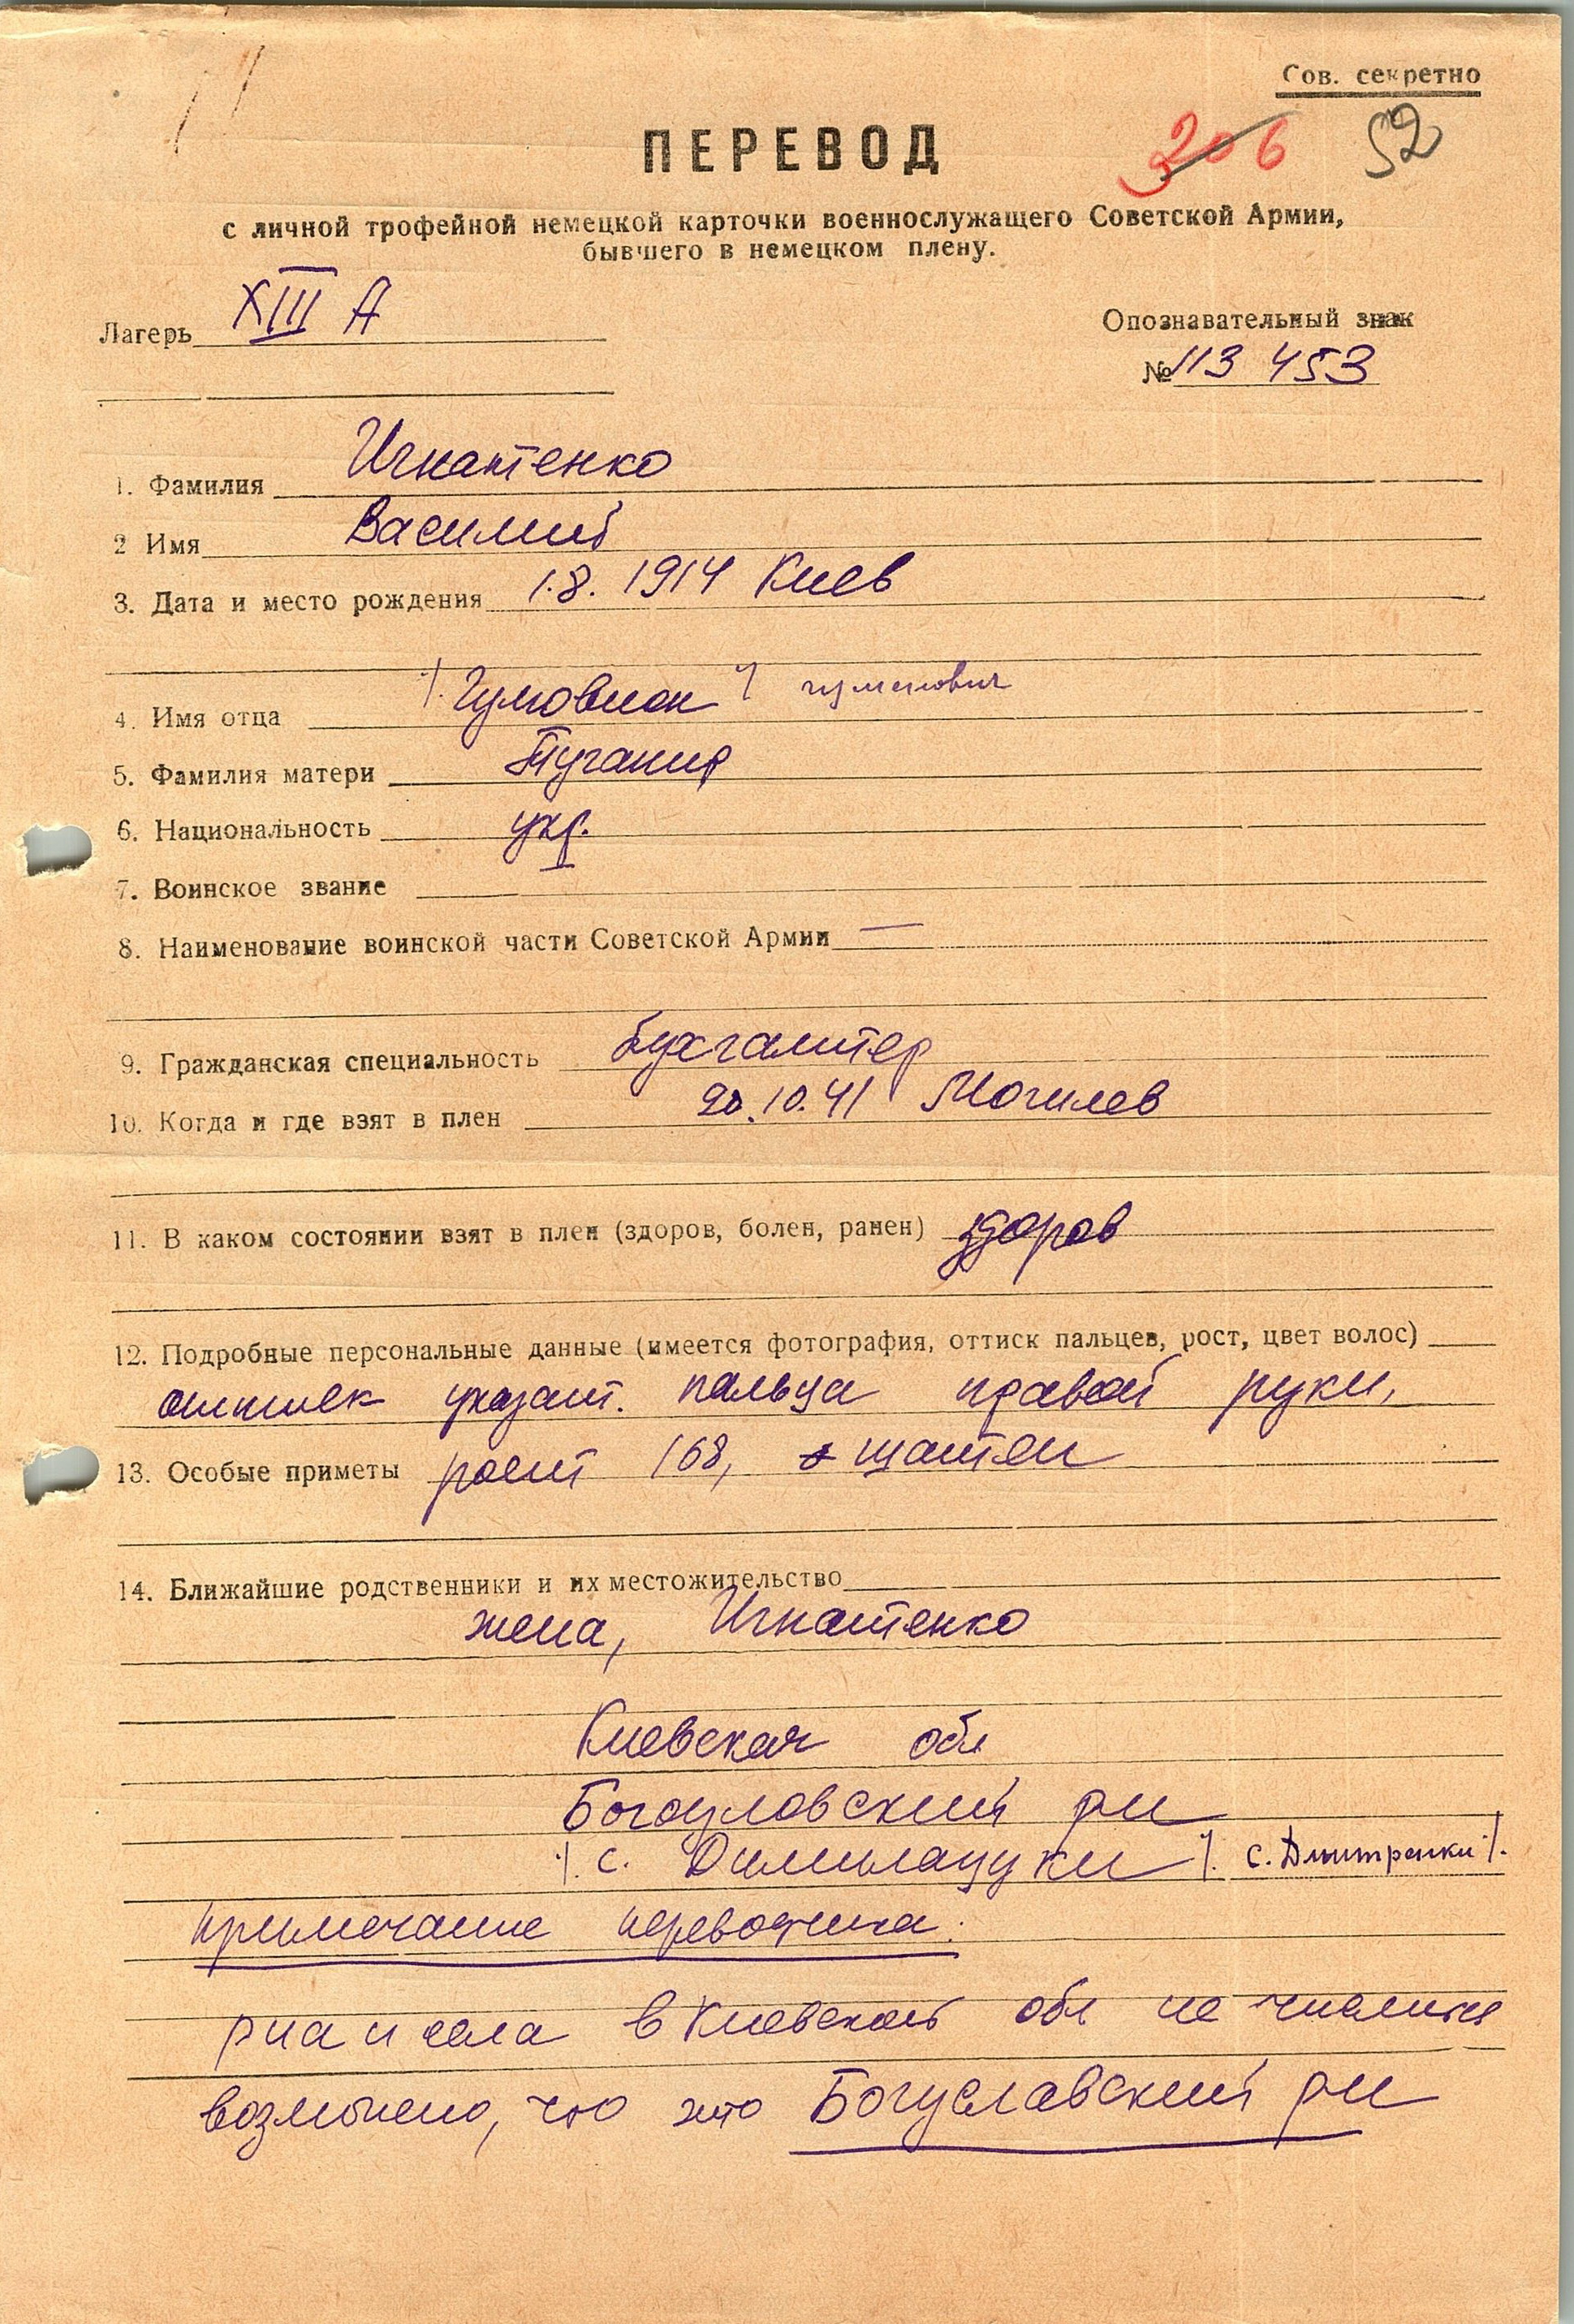 Сов. секретно
206 52
ПЕРЕВОД
с личной трофейной немецкой карточки военнослужащего Советской Армии,
бывшего в немецком плену.
Лагерь XIII А
Опознавательный знак
№ 113 453
1. Фамилия Игнатенко
2 Имя Василий
3. Дата и место рождения 1.8.1914 Киев
4. Имя отца
5. Фамилия матери
6. Национальность укр.
7. Воинское звание
8. Наименование воинской части Советской Армии —
9. Гражданская специальность бухгалтер
10. Когда и где взят в плен 20.10.41 Могилев
11. В каком состоянии взят в плен (здоров, болен, ранен) здоров
12. Подробные персональные данные (имеется фотография, оттиск пальцев, рост, цвет волос)
оттиск указат. пальца правой руки,
13. Особые приметы рост 168, шатен
14. Ближайшие родственники и их местожительство
жена, Игнатенко
Киевская обл
Богоуловский рн
с. с. Дмитренки
примечание переводчика:
рна и села в Киевской обл не числится
возможно, что это Богуславский рн